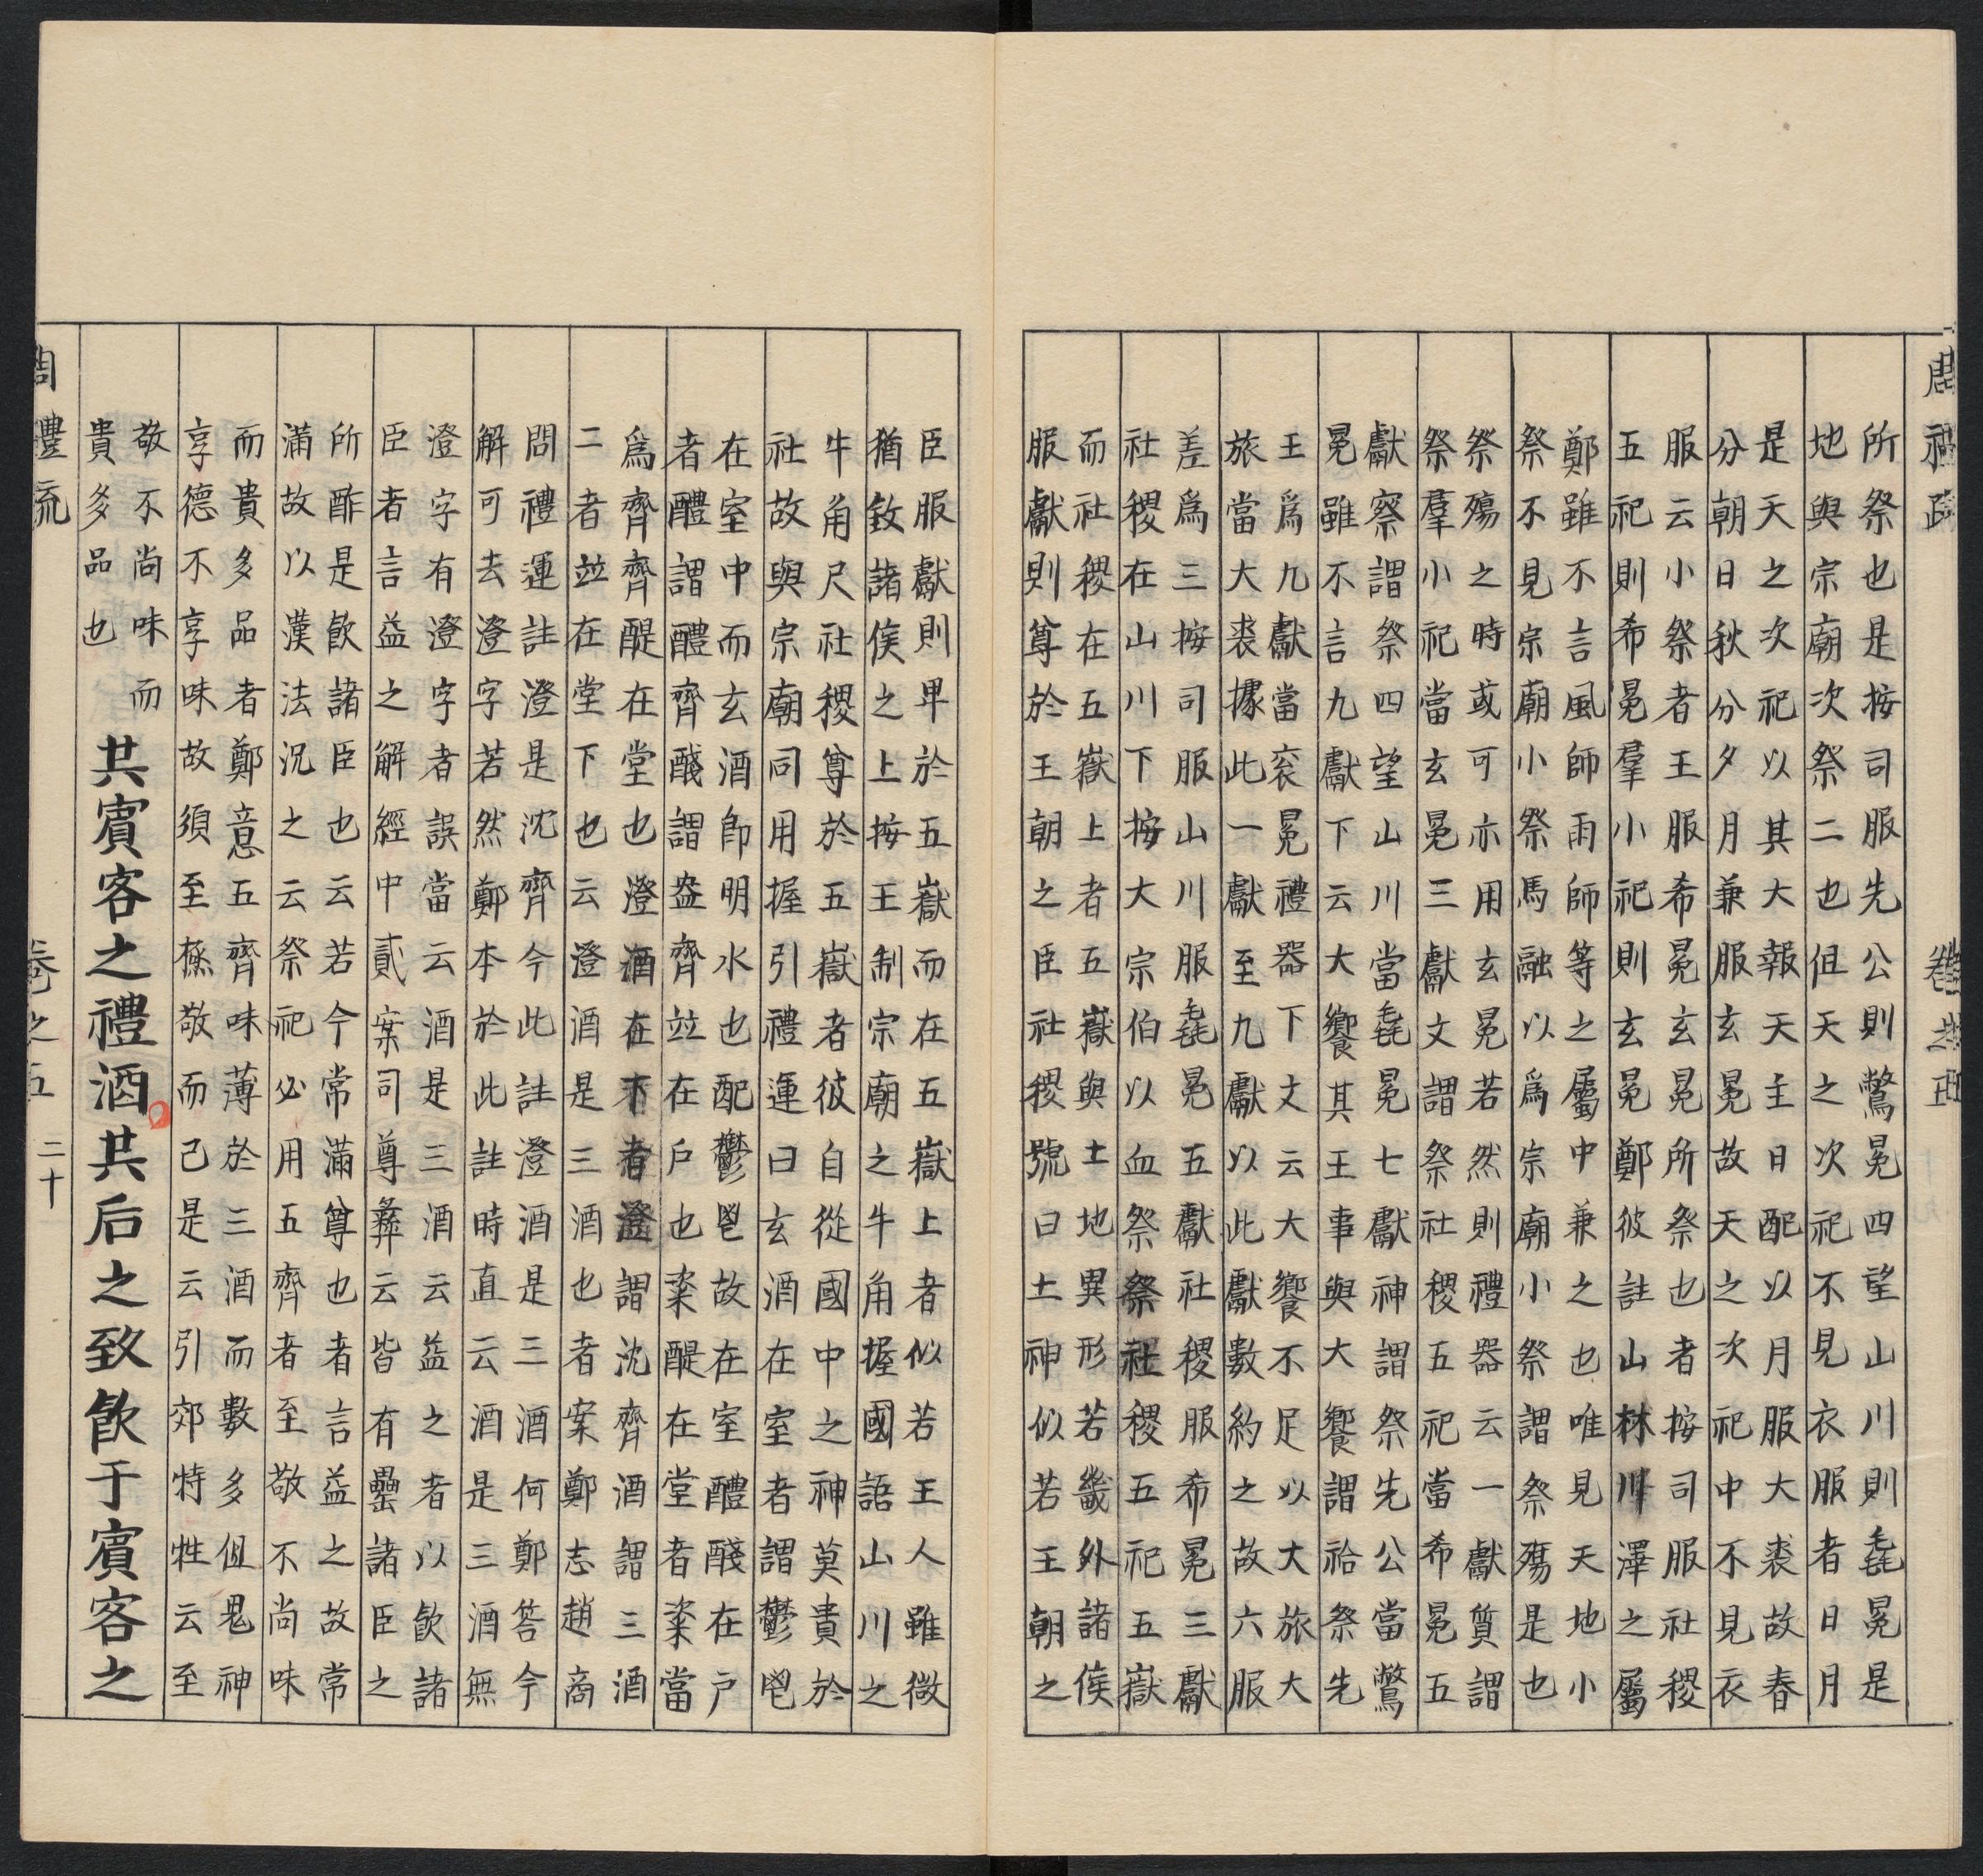 周禮疏 卷之五
所祭也是按司服先公則鷩冕四望山川則毳冕是
地與宗廟次祭二也但天之次祀不見衣服者日月
是天之次祀以其大報天主日配以月服大裘故春
分朝日秋分夕月兼服玄冕故天之次祀中不見衣
服云小祭者王服希冕玄冕所祭也者按司服社稷
五祀則希冕羣小祀則玄冕鄭彼註山林川澤之屬
鄭雖不言風師雨師等之屬中兼之也唯見天地小
祭不見宗廟小祭馬融以爲宗廟小祭謂祭殤是也
祭殤之時或可亦用玄冕若然則禮器云一獻質謂
祭羣小祀當玄冕三獻文謂祭社稷五祀當希冕五
獻察謂祭四望山川當毳冕七獻神謂祭先公當鷩
冕雖不言九獻下云大饗其王事與大饗謂祫祭先
王爲九獻當衮冕禮器下文云大饗不足以大旅大
旅當大裘據此一獻至九獻以此獻數約之故六服
差爲三按司服山川服毳冕五獻社稷服希冕三獻
社稷在山川下按大宗伯以血祭祭社稷五祀五嶽
而社稷在五嶽上者五嶽與土地異形若畿外諸侯
服獻則尊於王朝之臣社稷號曰土神似若王朝之
臣服獻則卑於五嶽而在五嶽上者似若王人雖微
猶敘諸侯之上按王制宗廟之牛角握國語山川之
牛角尺社稷尊於五嶽者彼自從國中之神莫貴於
社故與宗廟同用握引禮運曰玄酒在室者謂鬱鬯
在室中而玄酒即明水也配鬱鬯故在室醴醆在戶
者醴謂醴齊醆謂盎齊竝在戶也粢醍在堂者粢當
爲齊齊醍在堂也澄酒在下者澄謂沈齊酒謂三酒
二者竝在堂下也云澄酒是三酒也者案鄭志趙商
問禮運註澄是沈齊今此註澄酒是三酒何鄭答今
解可去澄字若然鄭本於此註時直云酒是三酒無
澄字有澄字者誤當云酒是三酒云益之者以飲諸
臣者言益之解經中貳案司尊彝云皆有罍諸臣之
所酢是飲諸臣也云若今常滿尊也者言益之故常
滿故以漢法況之云祭祀必用五齊者至敬不尚味
而貴多品者鄭意五齊味薄於三酒而數多但鬼神
享德不享味故須至極敬而已是云引郊特牲云至
敬不尚味而
貴多品也
共賓客之禮酒共后之致飲于賓客之
周禮疏 卷之五 二十